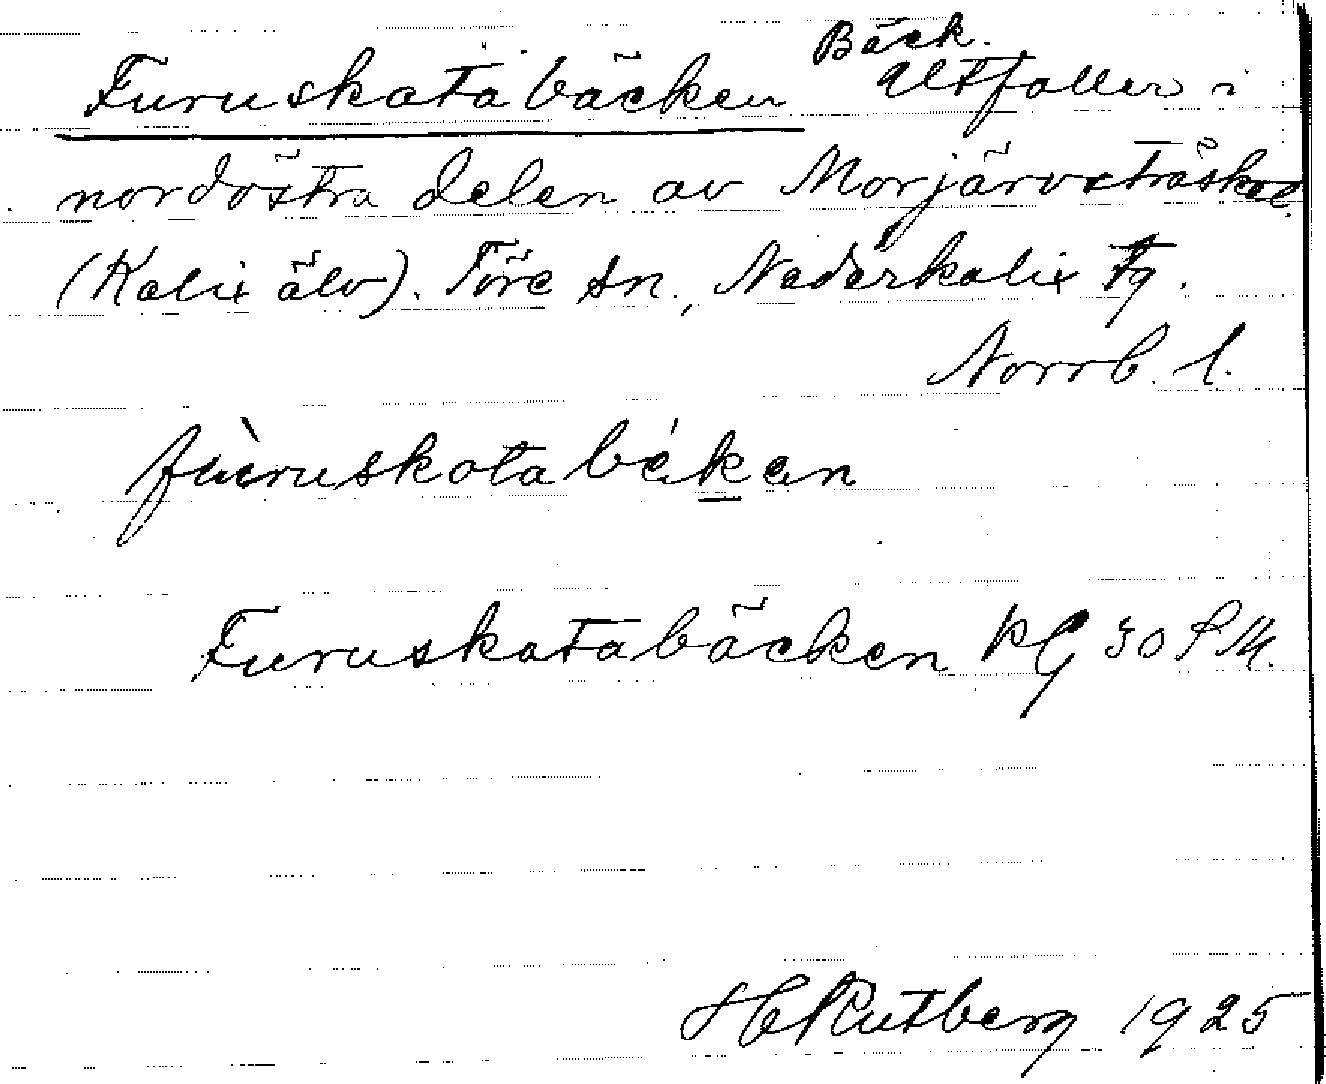 Furuskatabäcken Bäck. Utfaller i
nordöstra delen av Morjärvsträsket
(Kalix älv). Töre sn., Nederkalix tg.
Norrb. l.
fùruskatabékan
Furuskatabäcken KG 30 S M.
H Rutberg 1925